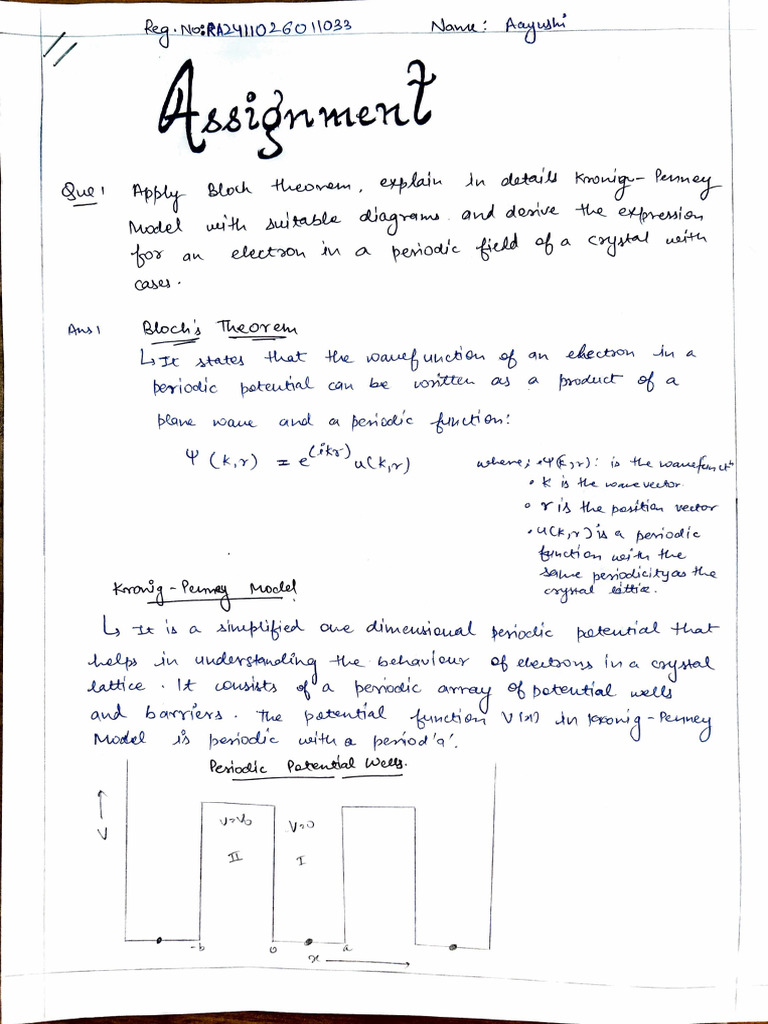 Reg. No: RA2411026011033 Name: Aayushi
Assignment
Que 1 Apply Bloch theorem, explain in details Kronig-Penney
Model with suitable diagrams and derive the expression
for an electron in a periodic field of a crystal with
cases.
Ans 1 Bloch's Theorem
↳ It states that the wavefunction of an electron in a
periodic potential can be written as a product of a
plane wave and a periodic function:
Ψ (k,r) = e^(ikr) u(k,r) where; •Ψ(k,r): is the wavefunctⁿ
• k is the wavevector
• r is the position vector
• u(k,r) is a periodic
function with the
same periodicity as the
crystal lattice.
Kronig-Penney Model
↳ It is a simplified one dimensional periodic potential that
helps in understanding the behaviour of electrons in a crystal
lattice. It consists of a periodic array of potential wells
and barriers. The potential function V(x) in Kronig-Penney
Model is periodic with a period 'a'.
Periodic Potential Wells.
↑ V
V=V₀ V=0
II I
-b 0 a
x →